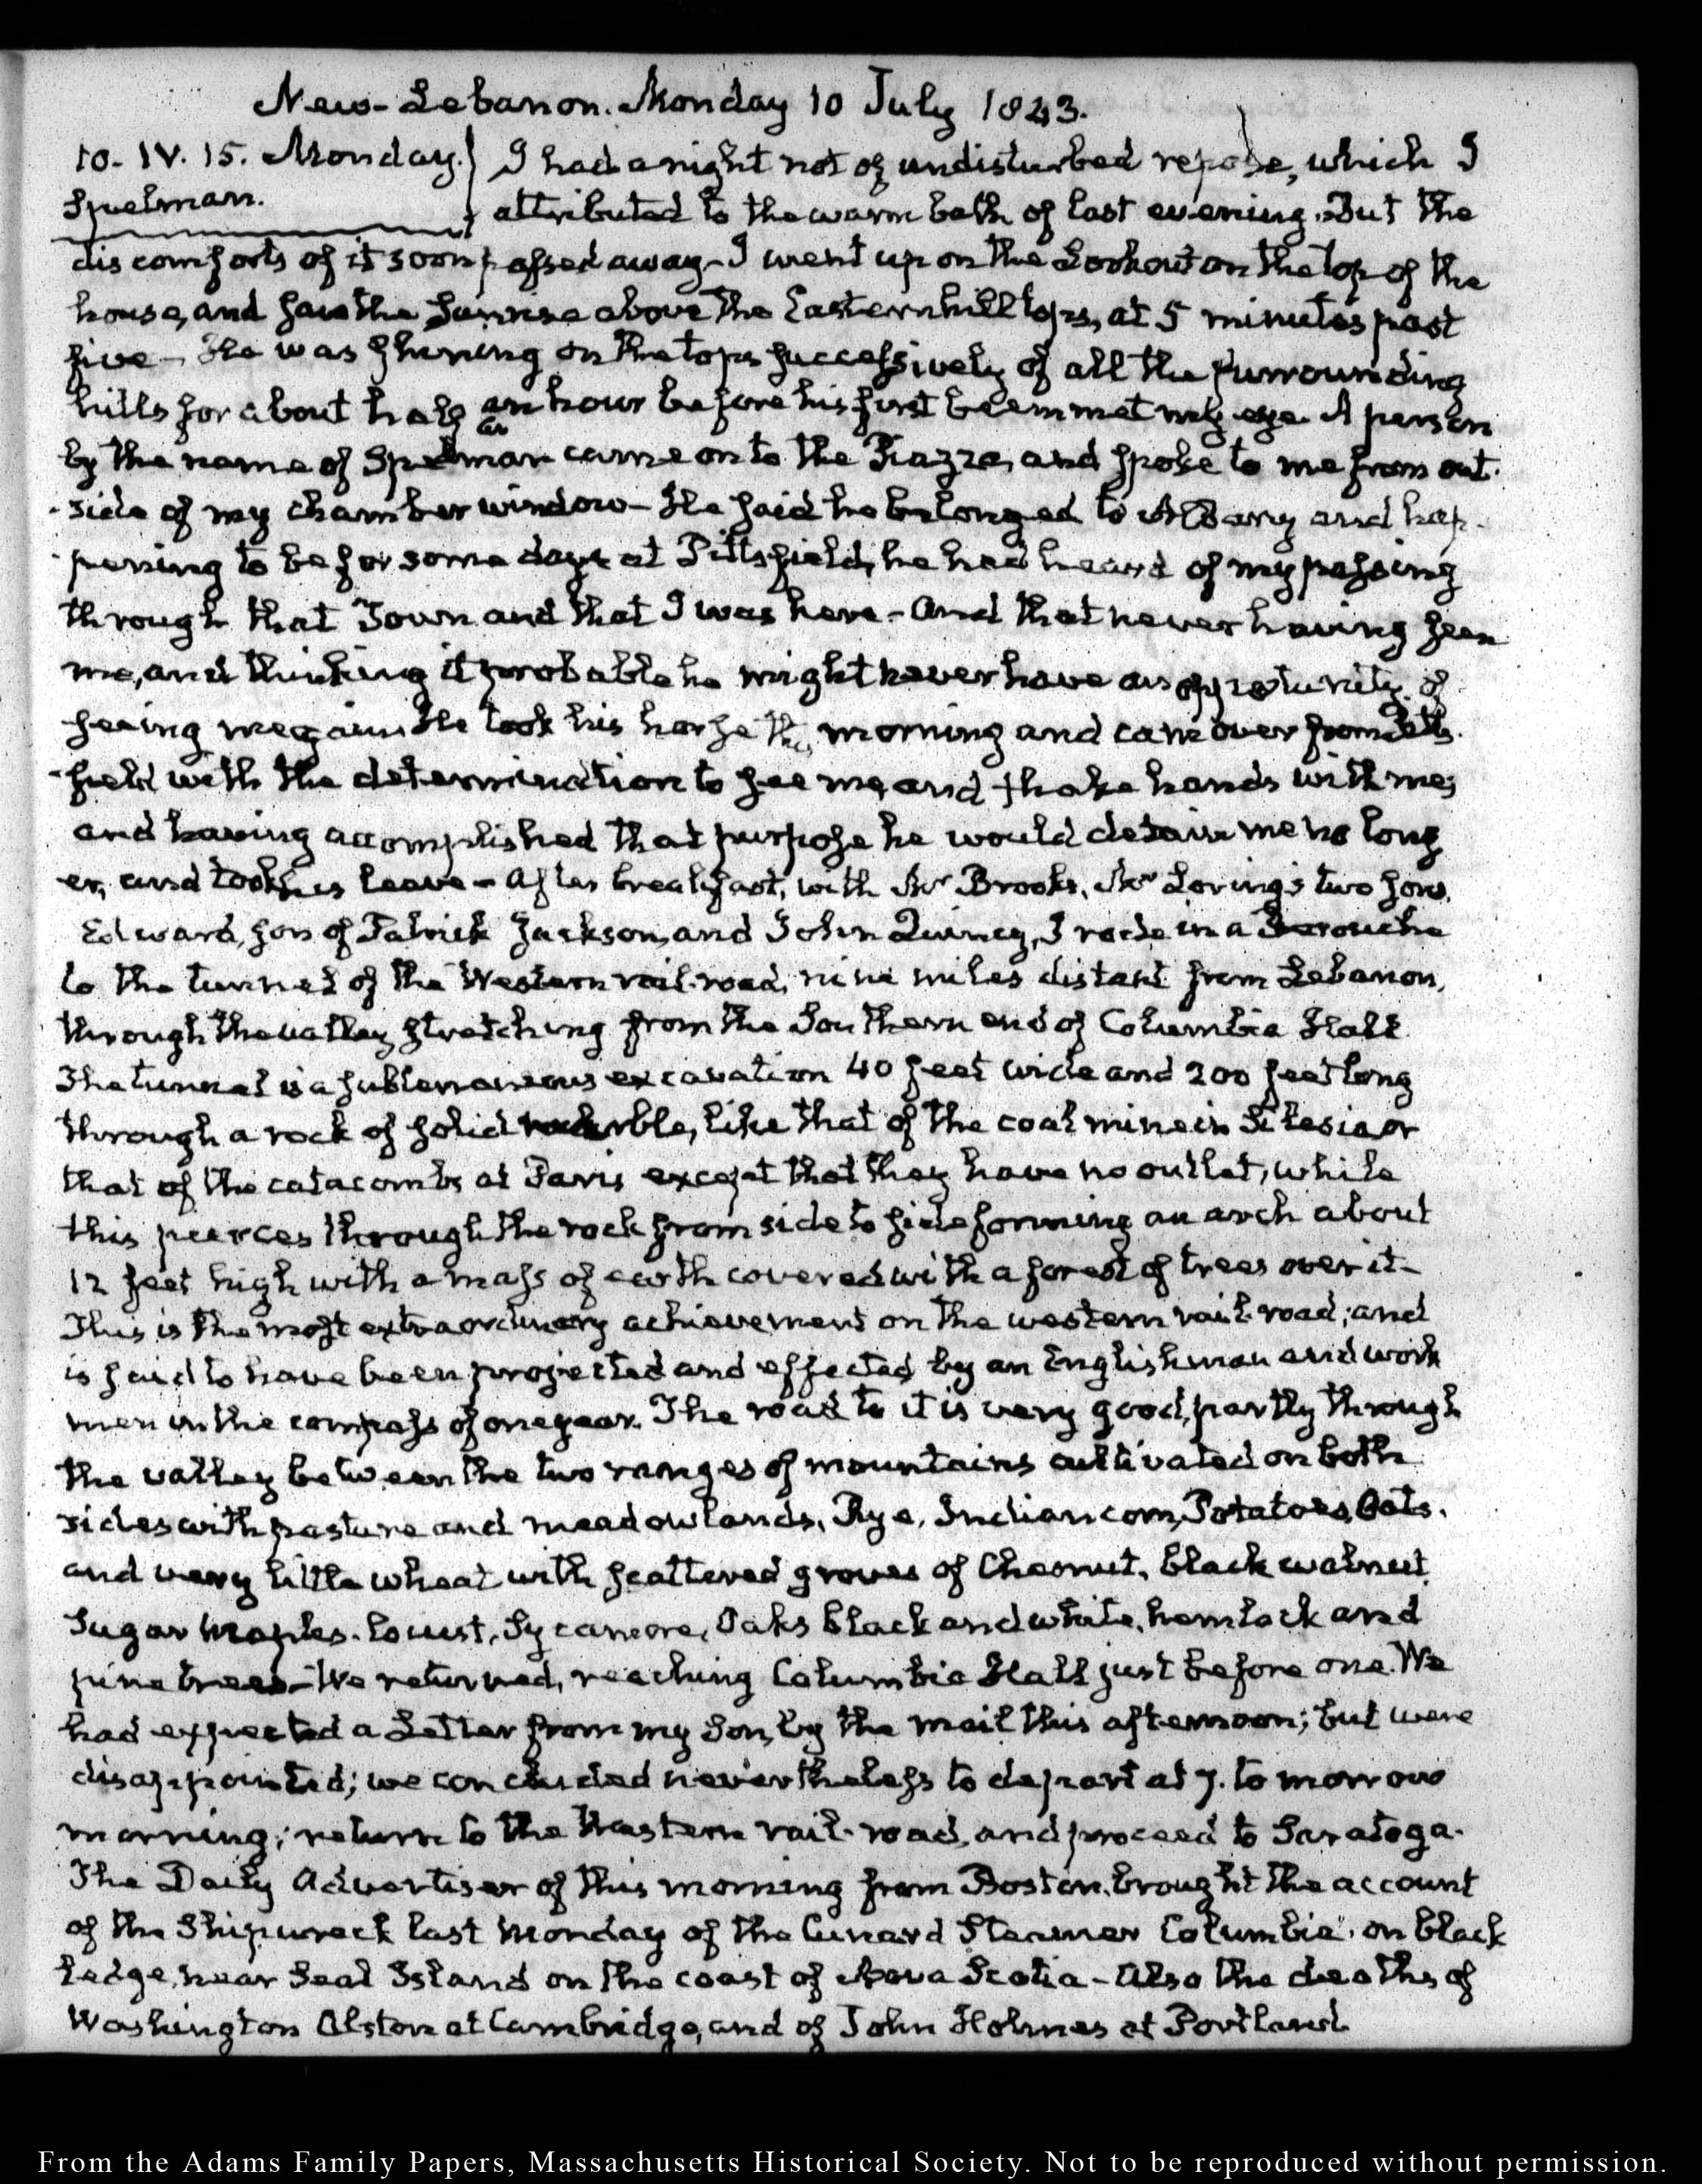 New-Lebanon. Monday 10 July 1843.
10. IV. 15. Monday. I had a night not of undisturbed repose, which I
Spelman. attributed to the warm bath of last evening. But the
discomforts of it soon passed away- I went up on the Lookout on the top of the
house, and saw the Sunrise above the Eastern hill tops, at 5 minutes past
five- He was shining on the tops successively of all the surrounding
hills for about half an hour before his first beem met my eye. A person
by the name of Spelman came on to the Piazza, and spoke to me from out-
-side of my chamber window- He said he belonged to Albany and hap-
-pening to be for some days at Pittsfield, he had heard of my passing
through that Town and that I was here- and that never having seen
me, and thinking it probable he might never have an opportunity of
seeing me again he took his horse this morning and came over from Pitts-
-field with the determination to see me, and shake hands with me;
and having accomplished that purpose he would detain me no long
er, and took his leave- After breakfast, with Mr Brooks, Mr Loring's two sons,
Edward, son of Patrick Jackson, and John Quincy, I rode in a Barouche
to the tunnel of the Western rail-road, nine miles distant from Lebanon,
through the valley stretching from the Southern end of Columbia Hall.
The tunnel is a subterraneous excavation 40 feet wide and 200 feet long
through a rock of solid marble, like that of the coal mine in Silesia, or
that of the catacombs at Paris except that they have no outlet, while
this peerces through the rock from side to side forming an arch about
12 feet high with a mass of earth covered with a forest of trees over it-
This is the most extraordinary achievement on the western rail-road; and
is said to have been projected and effected by an Englishman and work
men in the compass of one year. The road to it is very good, partly through
the valley between the two ranges of mountains cultivated on both
sides with pasture and meadow lands, Rye, Indian corn, Potatoes, Oats,
and very little wheat with scattered groves of Chesnut, black walnut
Sugar Maples, locust, Sycamore, Oaks black and white, hemlock and
pine trees- We returned, reaching Columbia Hall just before one. We
had expected a Letter from my Son, by the mail this afternoon; but were
disappointed; we concluded nevertheless to depart at 7. to morrow
morning; return to the Western rail-road, and proceed to Saratoga.
The Daily Advertiser of this morning from Boston, brought the account
of the Shipwreck last Monday of the Cunard Steamer Columbia, on black
Ledge, near Seal Island on the coast of Nova Scotia- Also the deaths of
Washington Alston at Cambridge, and of John Holmes at Portland
From the Adams Family Papers, Massachusetts Historical Society. Not to be reproduced without permission.